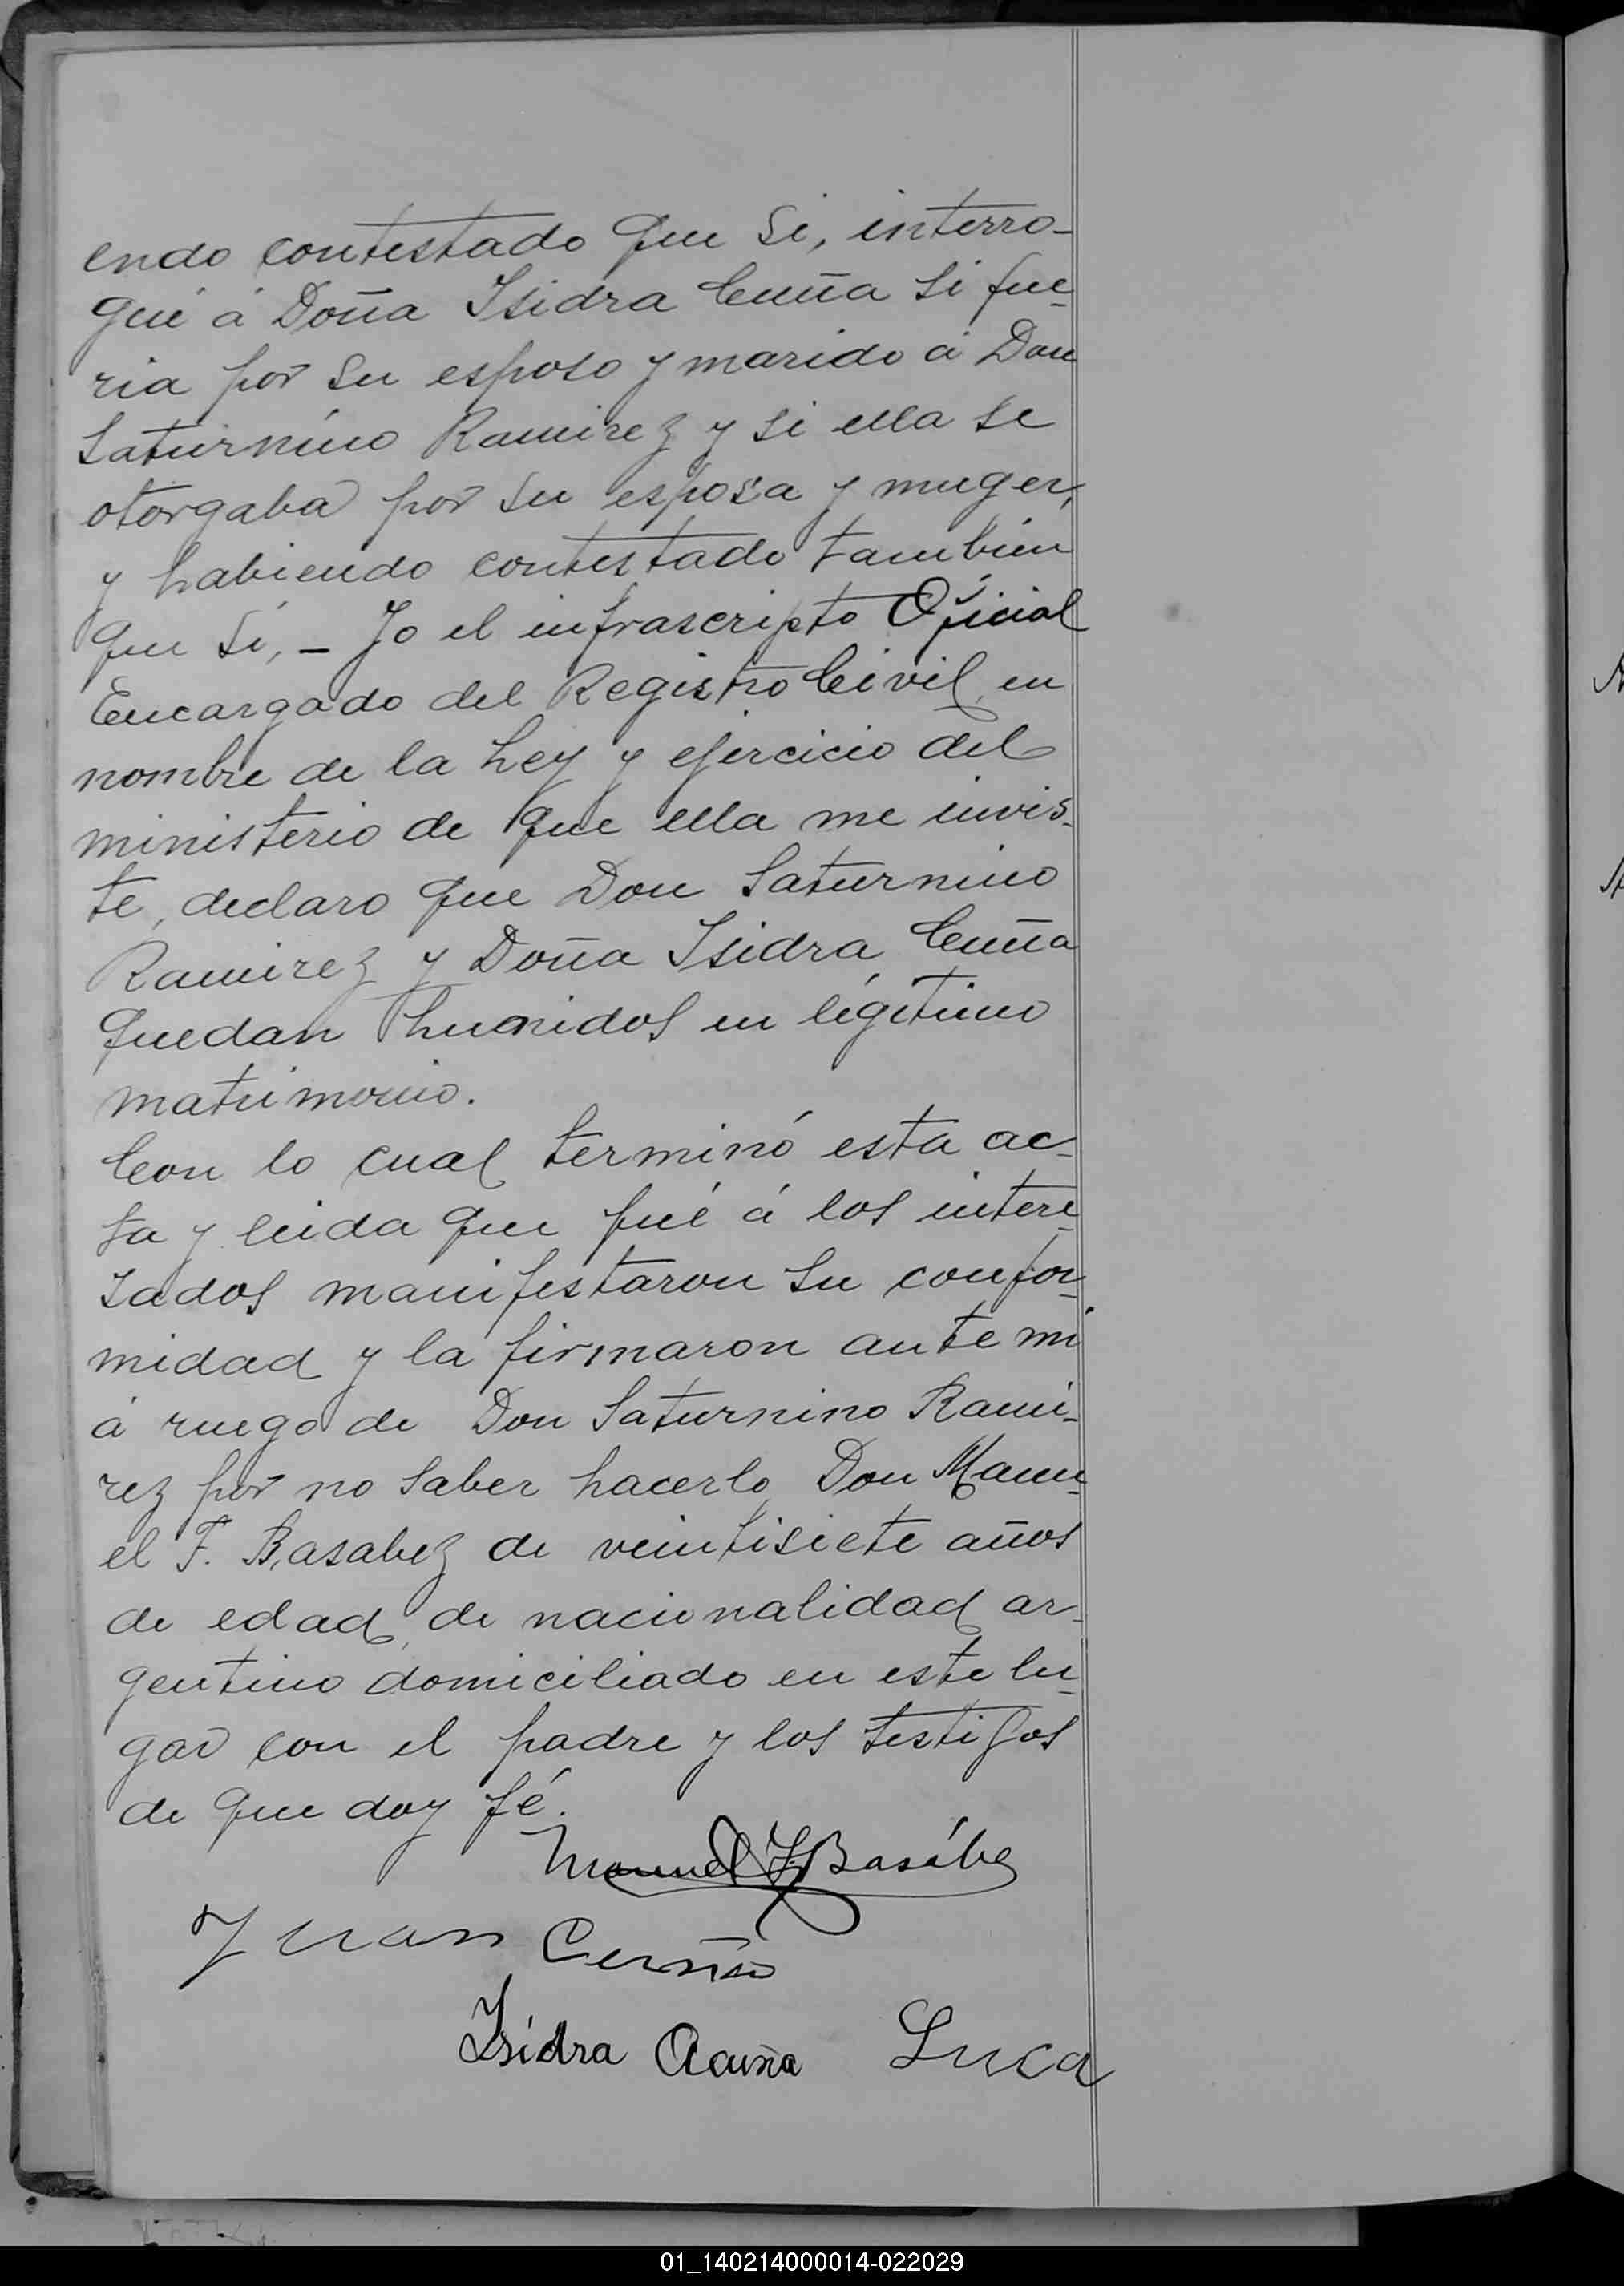 endo contestado que si, interro-
gué á Doña Isidra Cuña si que-
ria por su esposo y marido á Don
Saturnino Ramirez y si ella se
otorgaba por su esposa y muger,
y habiendo contestado tambien
que Si, – Yo el infrascripto Oficial
Encargado del Registro Civil, en
nombre de la Ley y ejercicio del
ministerio de que ella me invis-
te, declaro que Don Saturnino
Ramirez y Doña Isidra Cuña
quedan hunidos en légitimo
matrimonio.
Con lo cual terminó esta ac-
ta y leida que fué á los intere-
sados manifestaron su confor-
midad y la firmaron ante mi
á ruego de Don Saturnino Rami-
rez por no saber hacerlo, Don Manu-
el F. Basabez de veintisiete años
de edad, de nacionalidad ar-
gentino domiciliado en este lu-
gar con el padre y los testigos
de que doy fé.
Manuel F Basábe
Juan Cuña
Isidra Acuña Luca
01_140214000014-022029